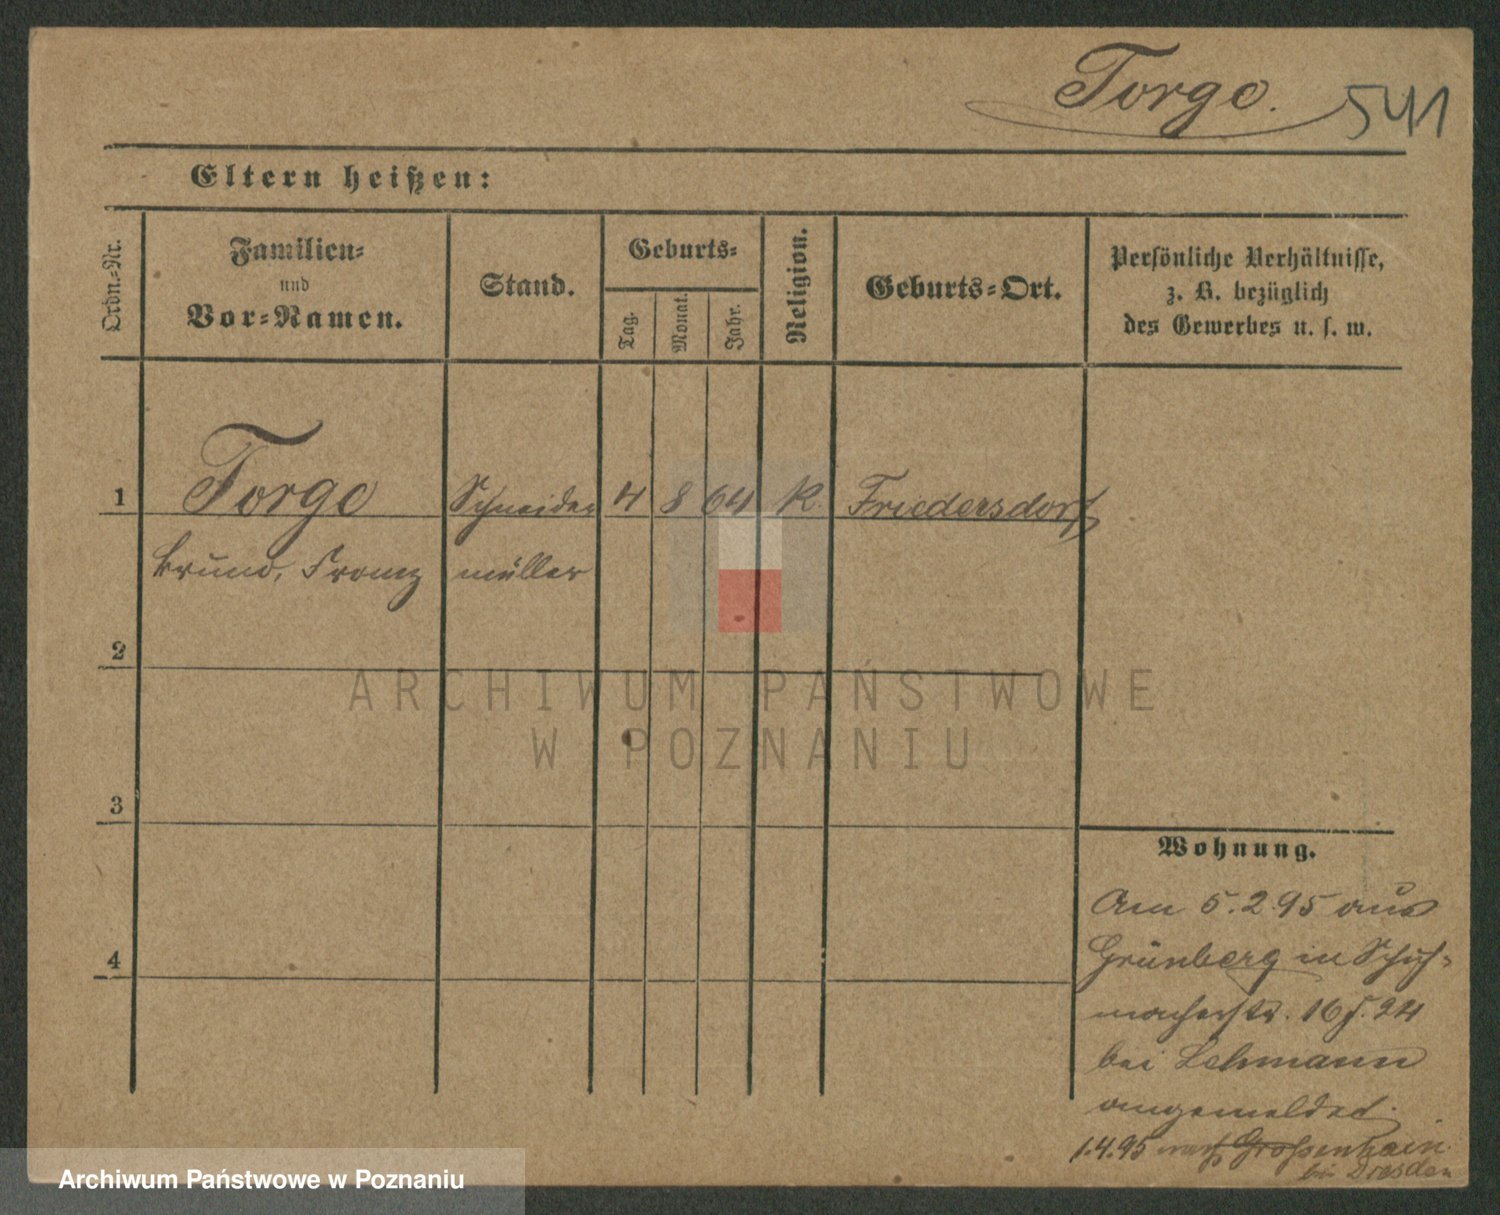 Torge. 541
Eltern heißen:
Ordn.=Nr.
Familien=
und
Vor=Namen.
Stand.
Geburts=
Tag.
Monat.
Jahr.
Religion.
Geburts=Ort.
Persönliche Verhältnisse,
z. B. bezüglich
des Gewerbes u. s. w.
1 Torge Schneide 4 8 64 K. Friedersdorf
Bruno, Franz müller
2
ARCHIWUM PAŃSTWOWE
W POZNANIU
3
Wohnung.
Am 5.2.95 aus
Grünberg in Schuh=
4
macherstr. 16
bei Lehmann
angemeldet.
1.4.95 nach Großenhain
bei Dresden
Archiwum Państwowe w Poznaniu